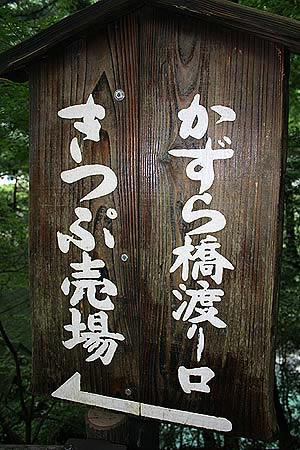 かずら橋渡り口
きっぷ売場